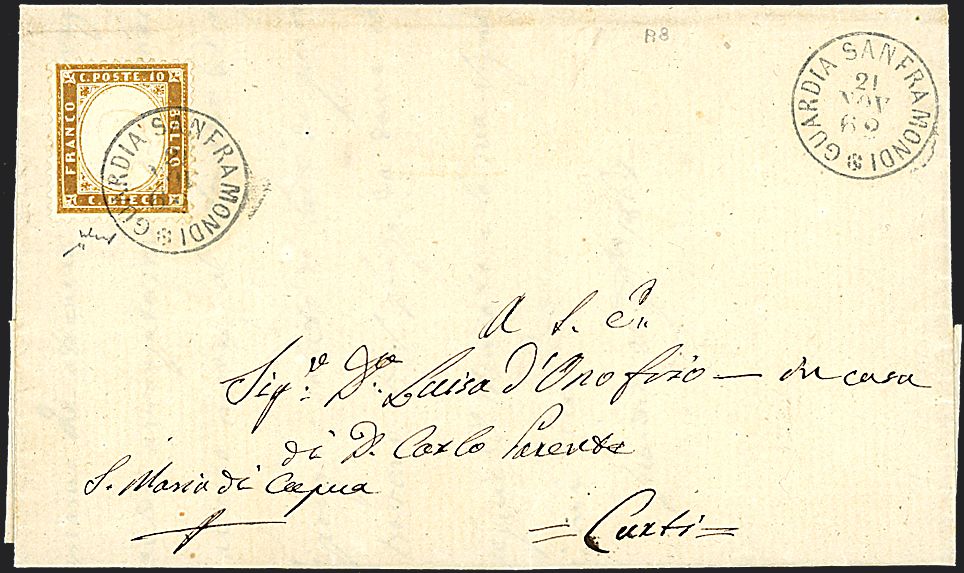 B8
C. POSTE. 10
FRANCO
BOLLO
C. DIECI
GUARDIA SANFRAMONDI
GUARDIA SANFRAMONDI
21
NOV
62
A S. E.
Sig.ª D.ª Luisa d'Onofrio — in casa
di D. Carlo Parente
S. Maria di Capua
= Curti =